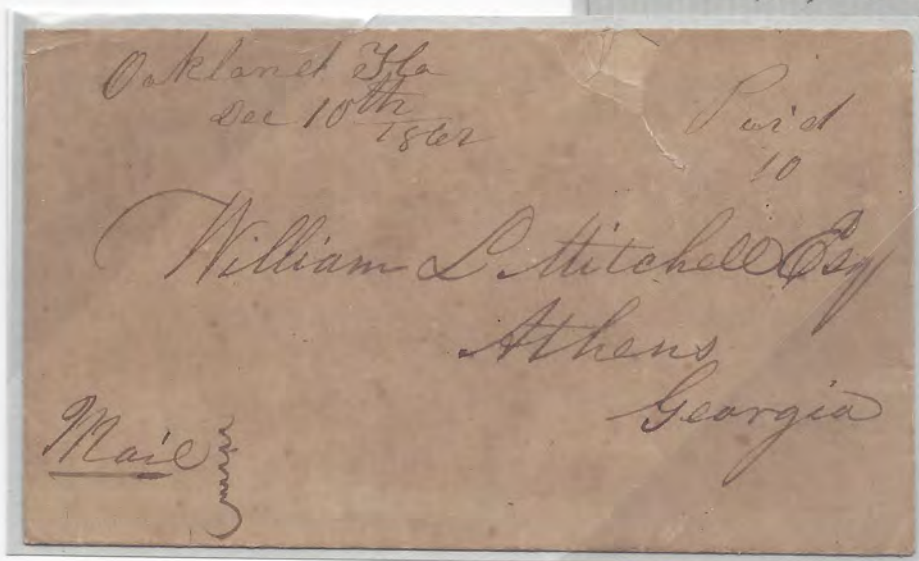 Oakland Fla
Dec 10th
1862
Paid
10
William L Mitchell Esq
Athens
Georgia
Mail